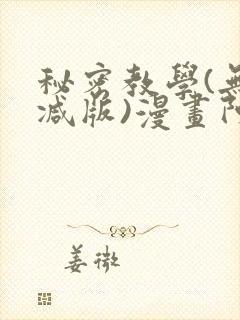 秘密教學(無
減版)漫畫
姜微